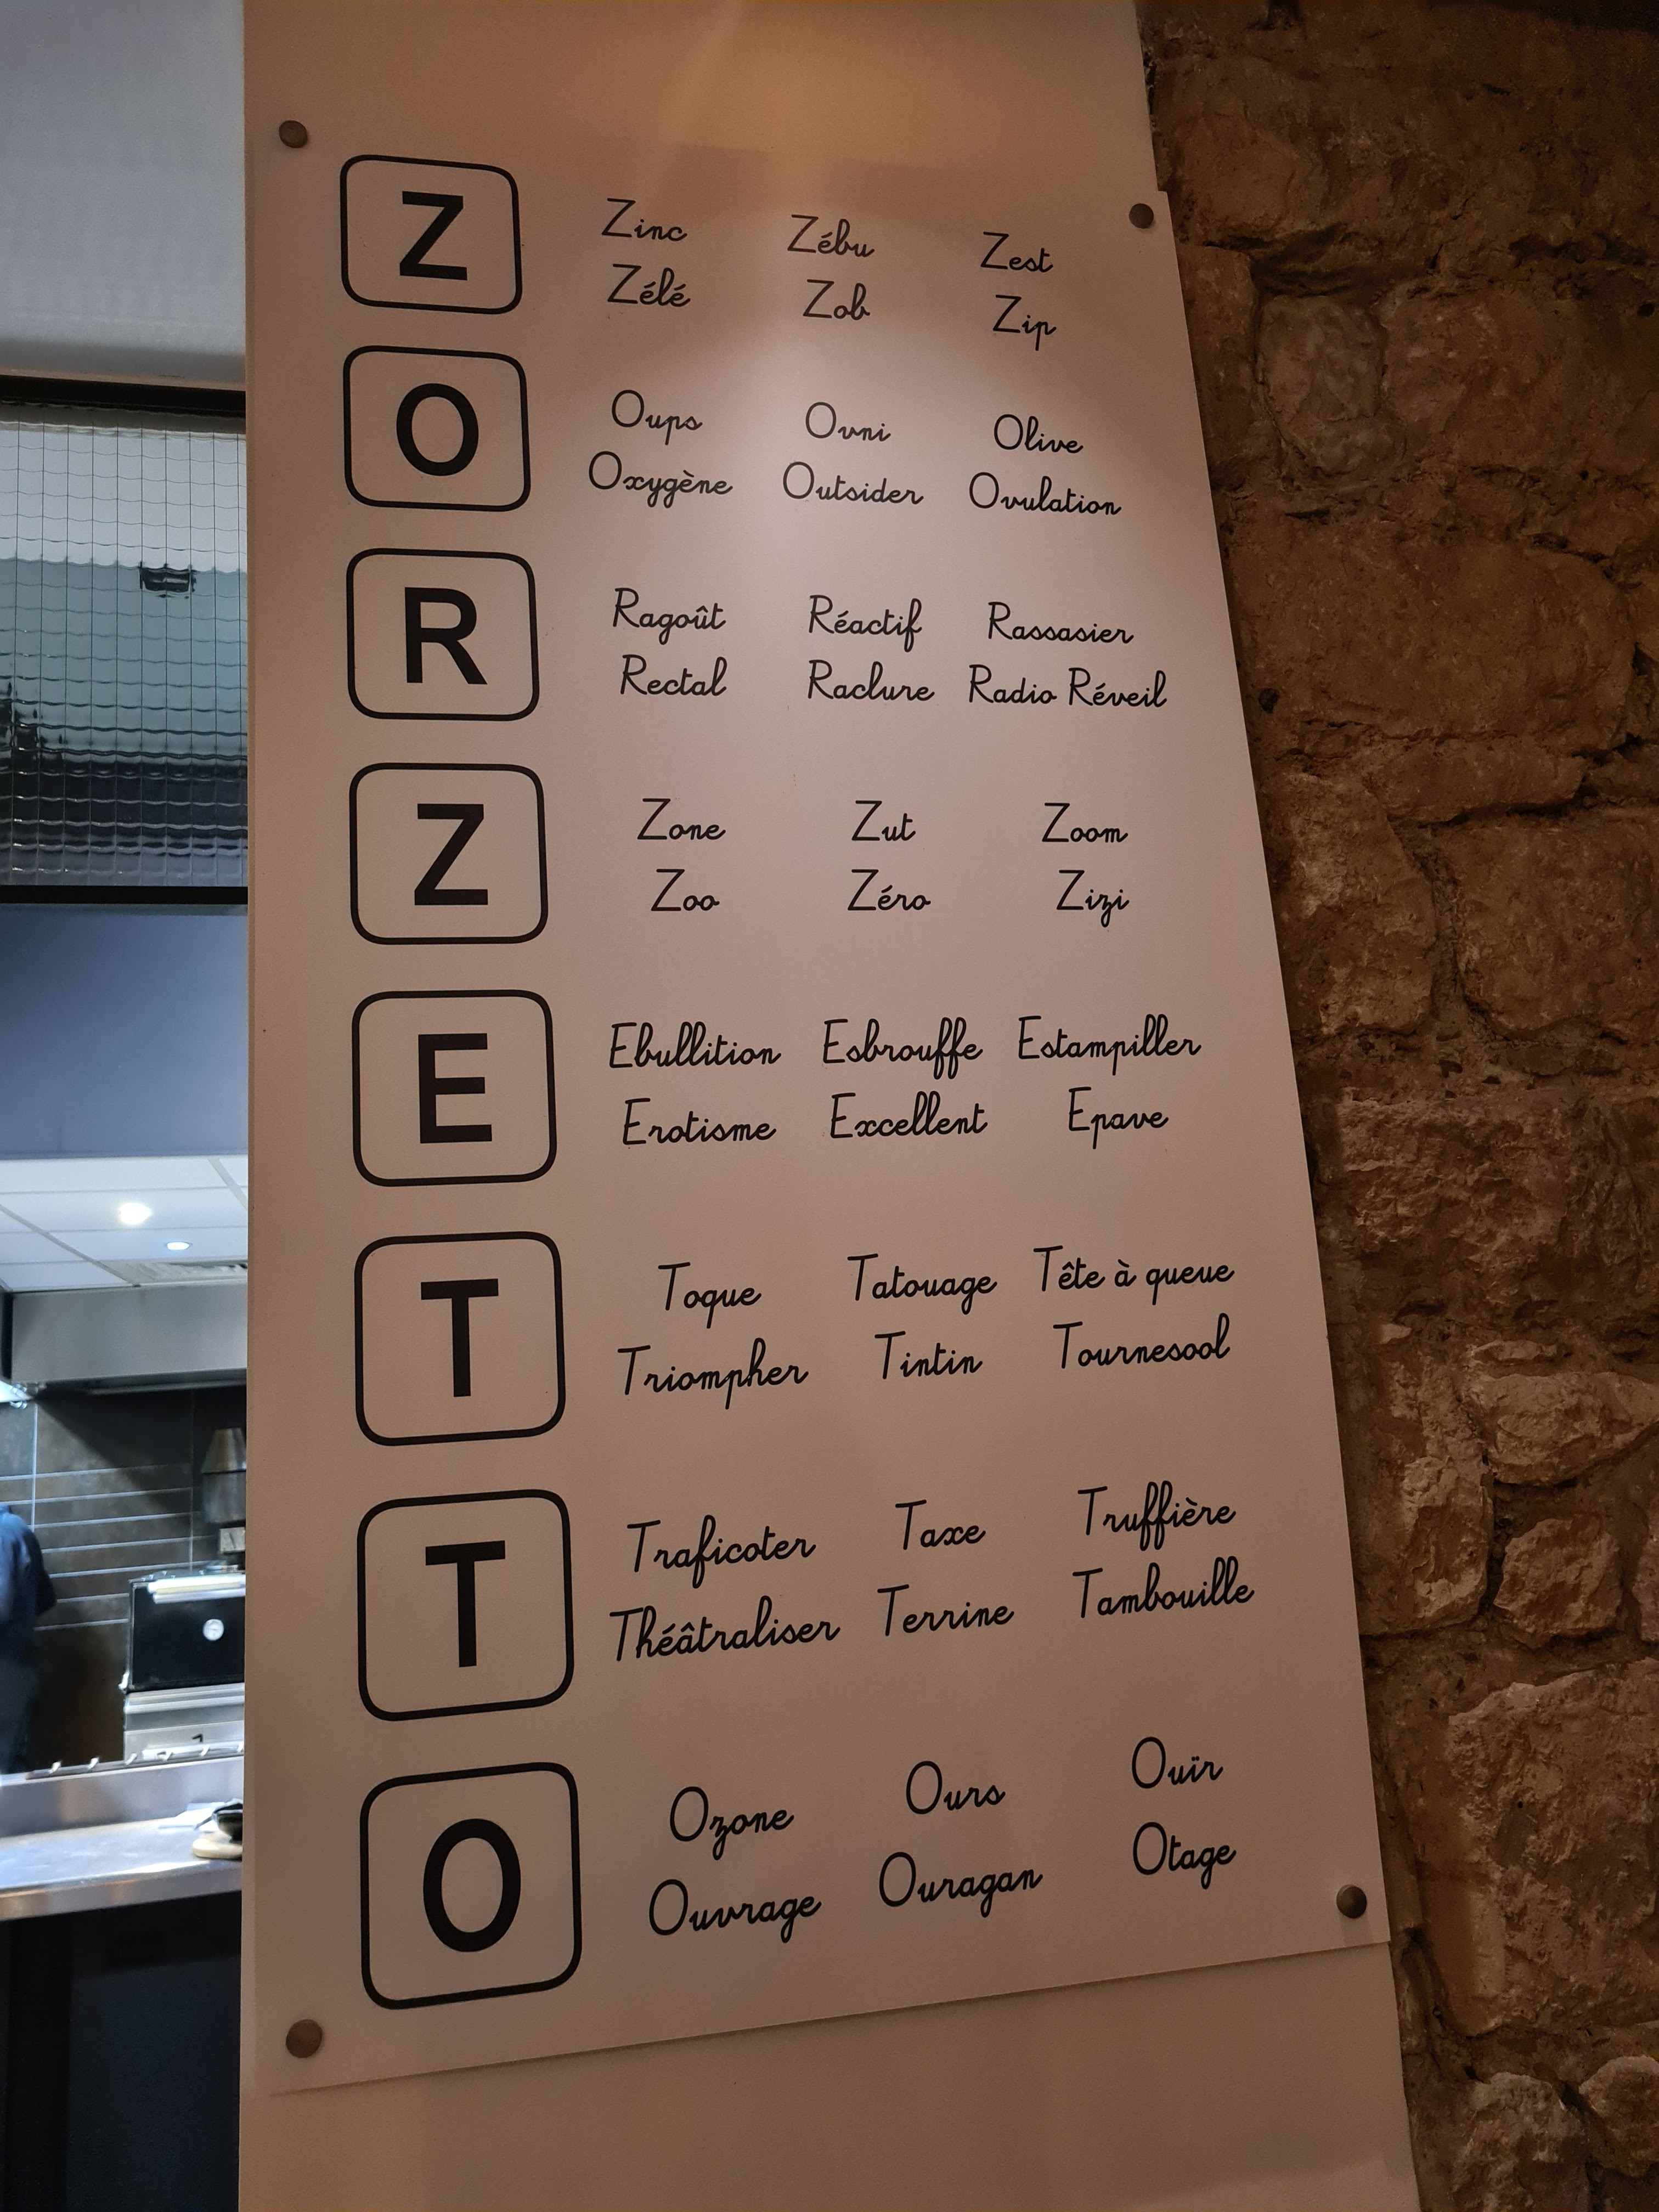 Z
Zinc Zébu Zest
Zélé Zob Zip
O
Oups Ovni Olive
Oxygène Outsider Ovulation
R
Ragoût Réactif Rassasier
Rectal Raclure Radio Réveil
Z
Zone Zut Zoom
Zoo Zéro Zizi
E
Ebullition Esbrouffe Estampiller
Erotisme Excellent Epave
T
Toque Tatouage Tête à queue
Triompher Tintin Tournesool
T
Traficoter Taxe Truffière
Théâtraliser Terrine Tambouille
O
Ozone Ours Ouïr
Ouvrage Ouragan Otage